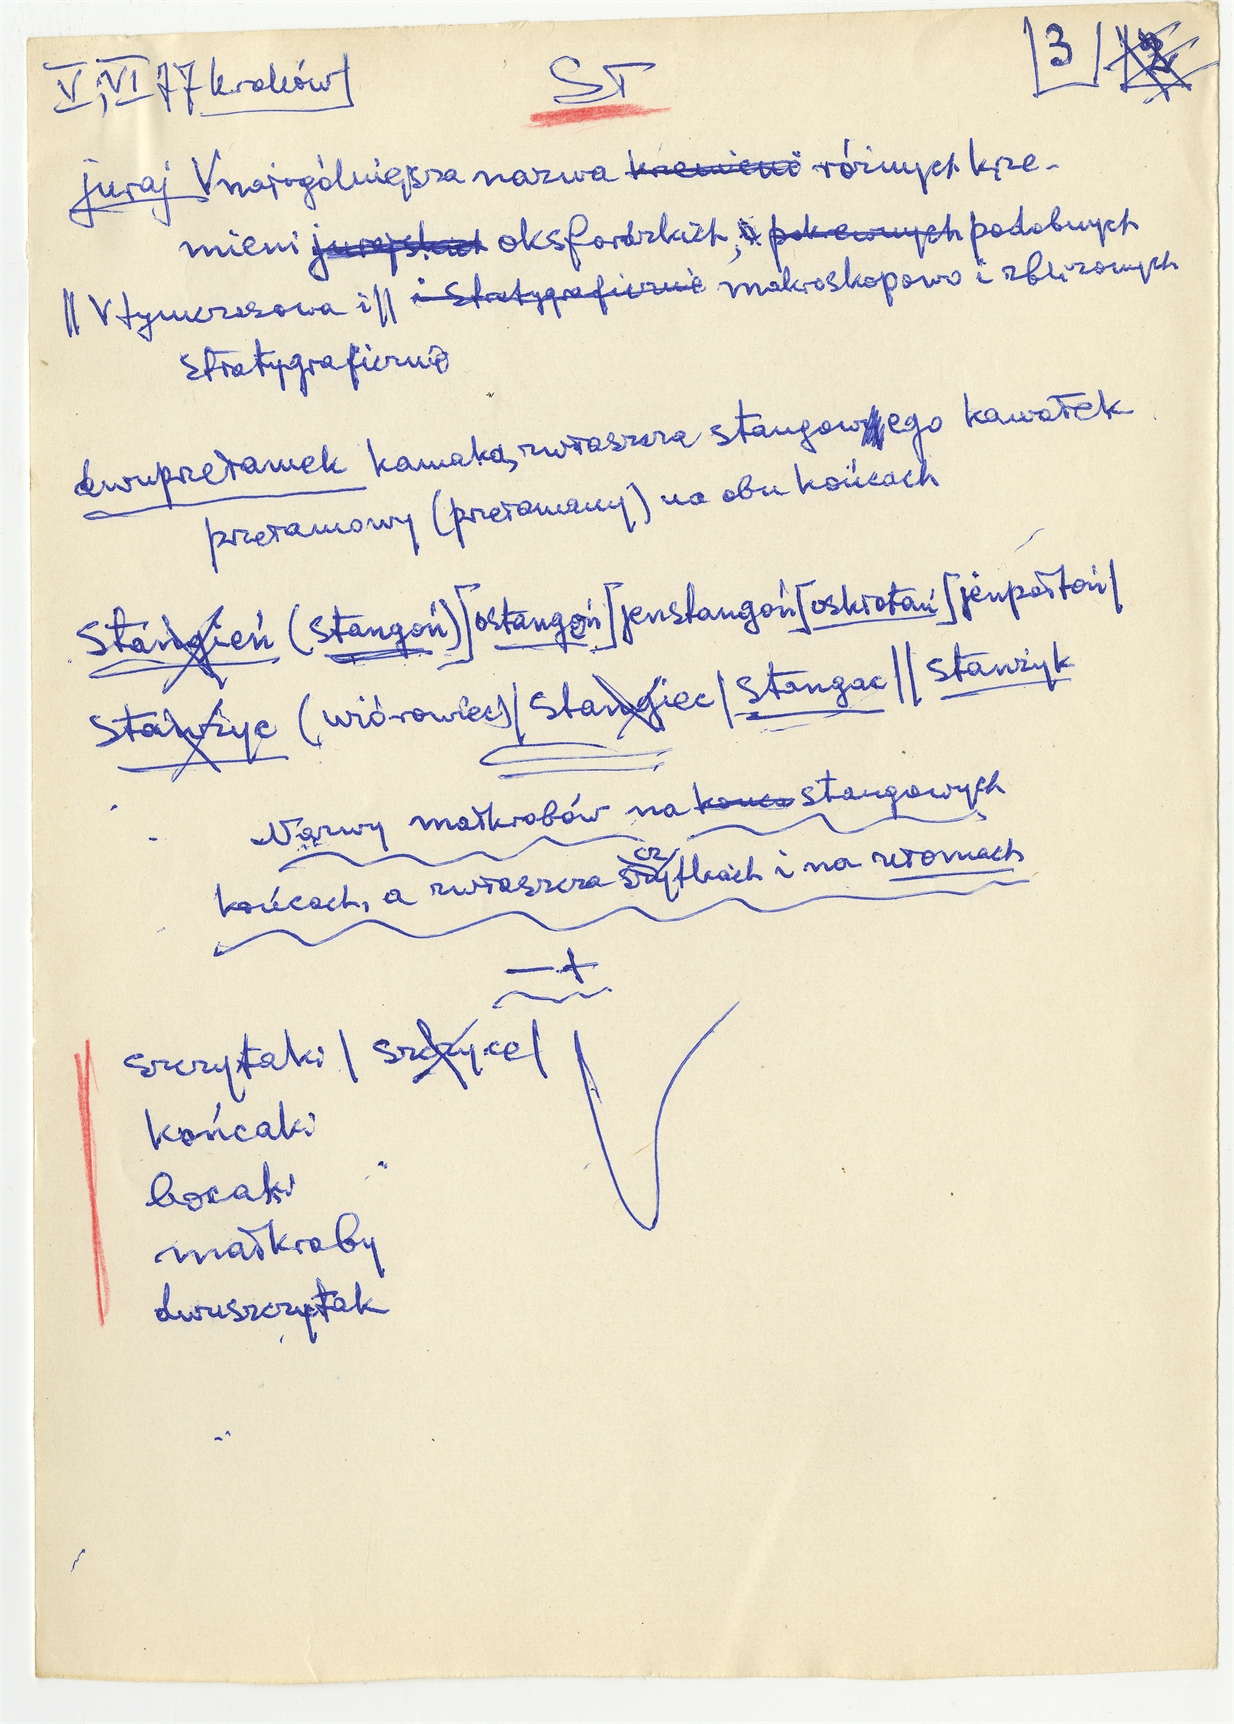 V, VI 77 Kraków ST 3 2
juraj V najogólniejsza nazwa krzemieni różnych krze-
mieni jurajskich oksfordzkich, i pokrewnych podobnych
|| V tymczasowa i || i stratygraficznie makroskopowo i zbliżonych
stratygraficznie
dwuprzełamek kamaka, zwłaszcza stangowego kawałek
przełamowy (przełamany) na obu końcach
Stangień (stangoń)] ostangoń] jenstangoń] oskrotań] jenpołtoń|
Stanżyc (wiórowiec)| Stangiec | Stangac || Stanżyk
Nazwy małkrobów na końca stangowych
końcach, a zwłaszcza szczytkach i na złomach
— +
szczytaki | szczyce |
końcaki
bocaki
małkroby
dwuszczytak